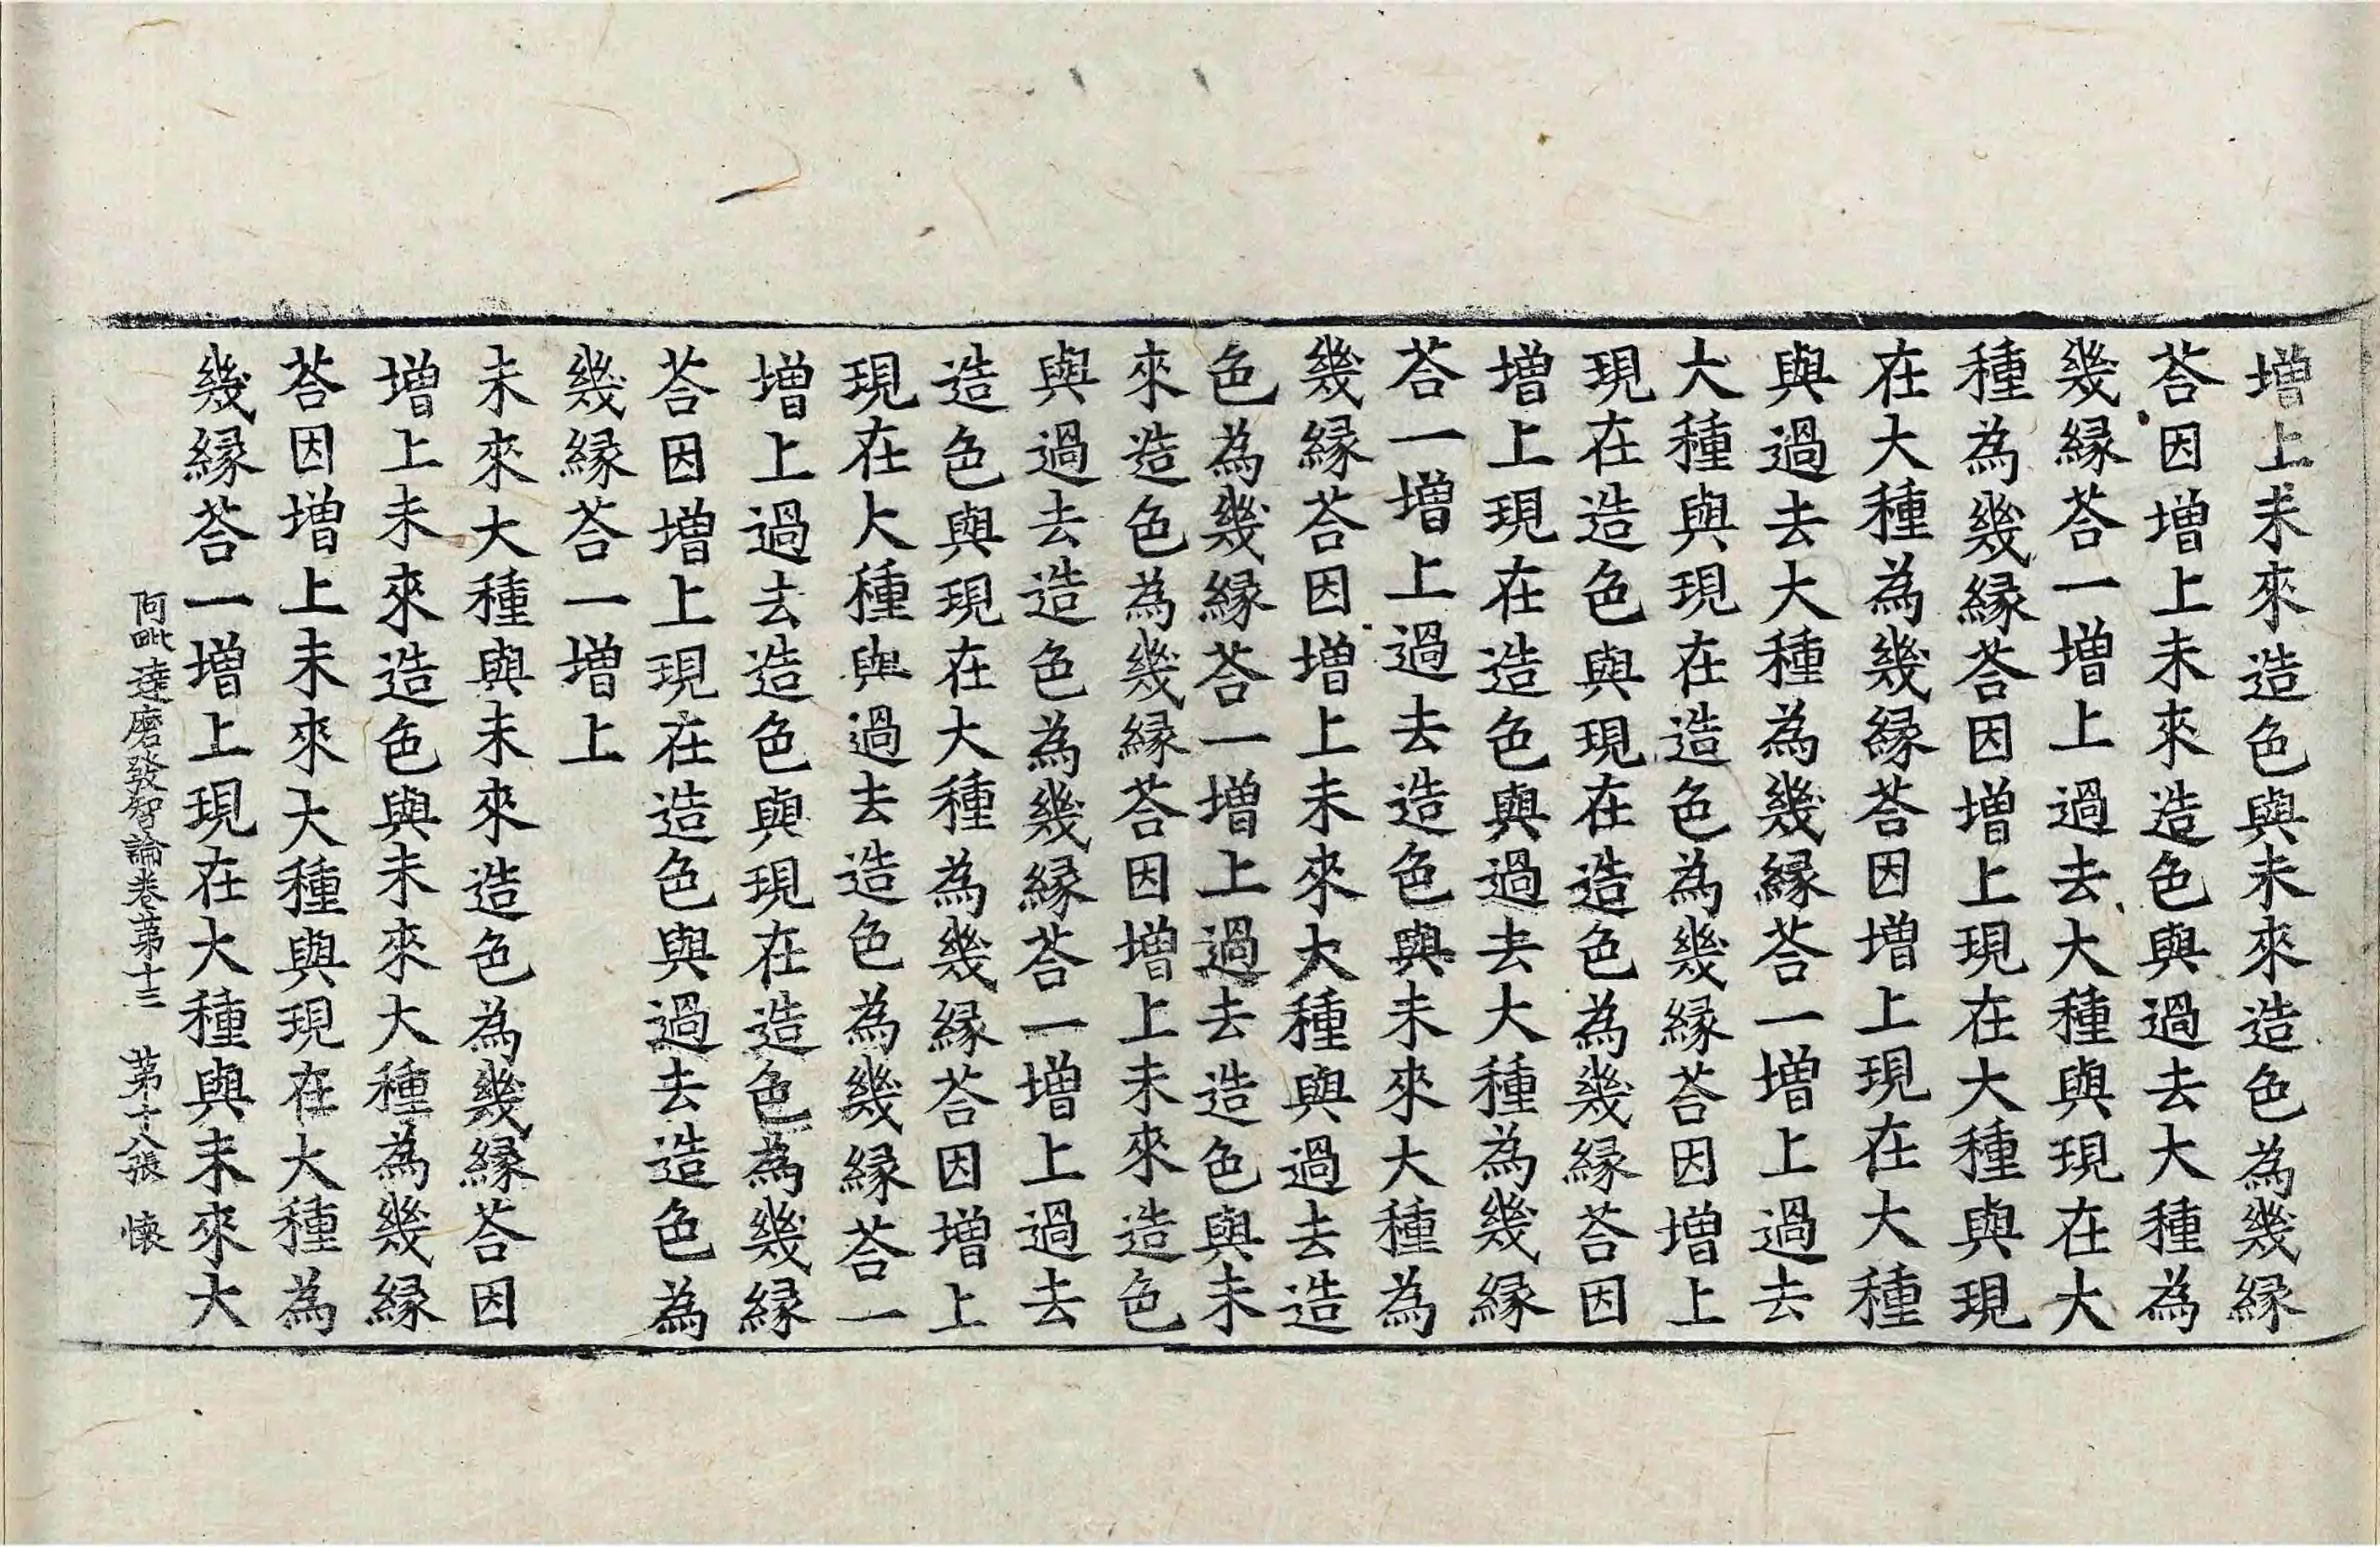 增上未來造色與未來造色為幾縁
荅因增上未來造色與過去大種為
幾縁荅一增上過去大種與現在大
種為幾縁荅因增上現在大種與現
在大種為幾縁荅因增上現在大種
與過去大種為幾縁荅一增上過去
大種與現在造色為幾縁荅因增上
現在造色與現在造色為幾縁荅因
增上現在造色與過去大種為幾縁
荅一增上過去造色與未來大種為
幾縁荅因增上未來大種與過去造
色為幾縁荅一增上過去造色與未
來造色為幾縁荅因增上未來造色
與過去造色為幾縁荅一增上過去
造色與現在大種為幾縁荅因增上
現在大種與過去造色為幾縁荅一
增上過去造色與現在造色為幾縁
荅因增上現在造色與過去造色為
幾縁荅一增上
未來大種與未來造色為幾縁荅因
增上未來造色與未來大種為幾縁
荅因增上未來大種與現在大種為
幾縁荅一增上現在大種與未來大
阿毗達磨發智論卷苐十三 苐十八張 懷